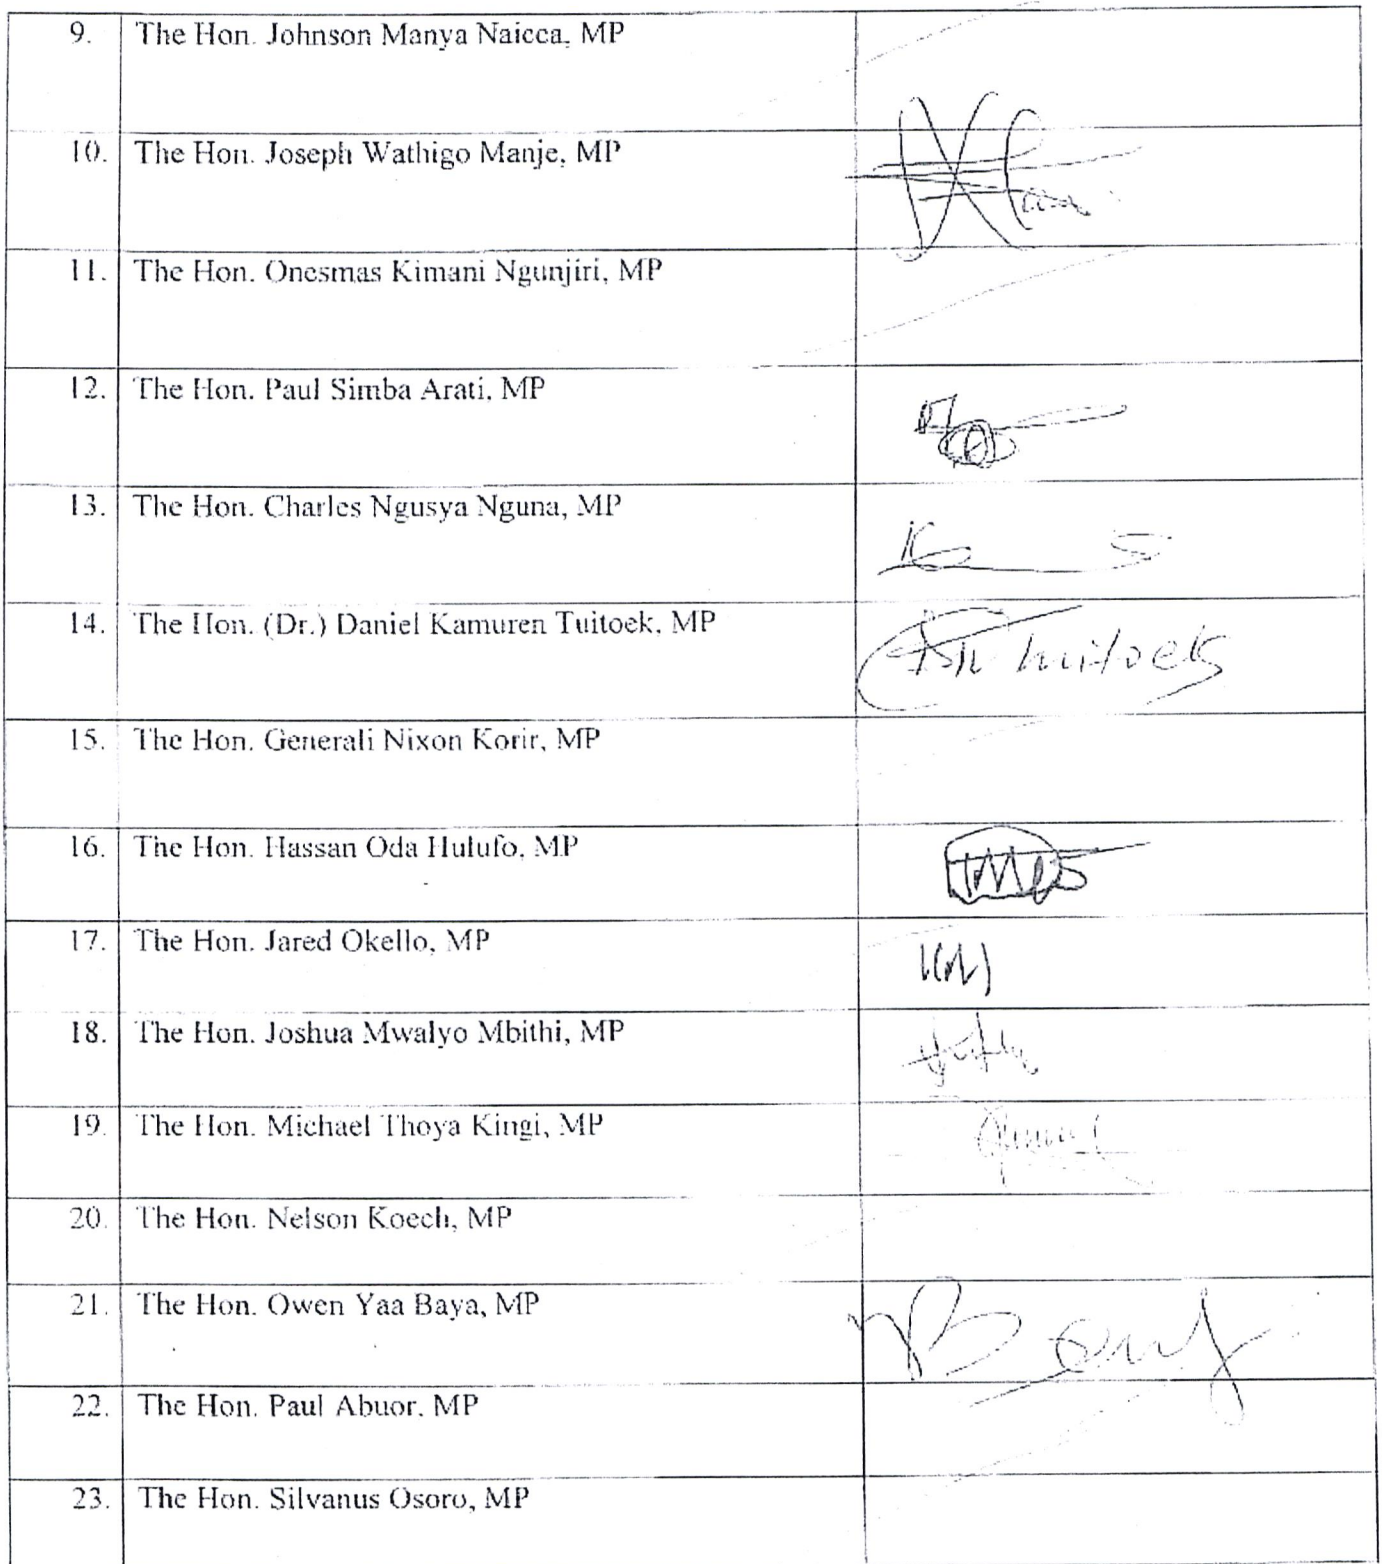 9. The Hon. Johnson Manya Naicca, MP
10. The Hon. Joseph Wathigo Manje, MP
11. The Hon. Onesmas Kimani Ngunjiri, MP
12. The Hon. Paul Simba Arati, MP
13. The Hon. Charles Ngusya Nguna, MP
14. The Hon. (Dr.) Daniel Kamuren Tuitoek, MP Tuitoek
15. The Hon. Generali Nixon Korir, MP
16. The Hon. Hassan Oda Hulufo, MP
17. The Hon. Jared Okello, MP
18. The Hon. Joshua Mwalyo Mbithi, MP
19. The Hon. Michael Thoya Kingi, MP
20. The Hon. Nelson Koech, MP
21. The Hon. Owen Yaa Baya, MP
22. The Hon. Paul Abuor, MP
23. The Hon. Silvanus Osoro, MP